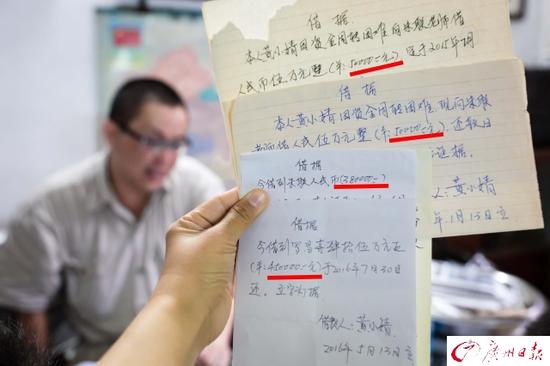 借据
本人黄小婧因资金周转困难向朱骏老师借
人民币伍万元整(¥:50000.-元)定于2015年1月
借据
本人黄小婧因资金周转困难,现向朱骏
老师借人民伍万元整(¥:50000.-元).还款日
据.
黄小婧
1月13日立
借据
今借到朱骏人民币(380000.-)
借据
今借到
肆拾伍万元正
(¥:450000.-元)于2016年7月30日
还。立字为据
借款人:黄小婧
2016年5月13日立
广州日报